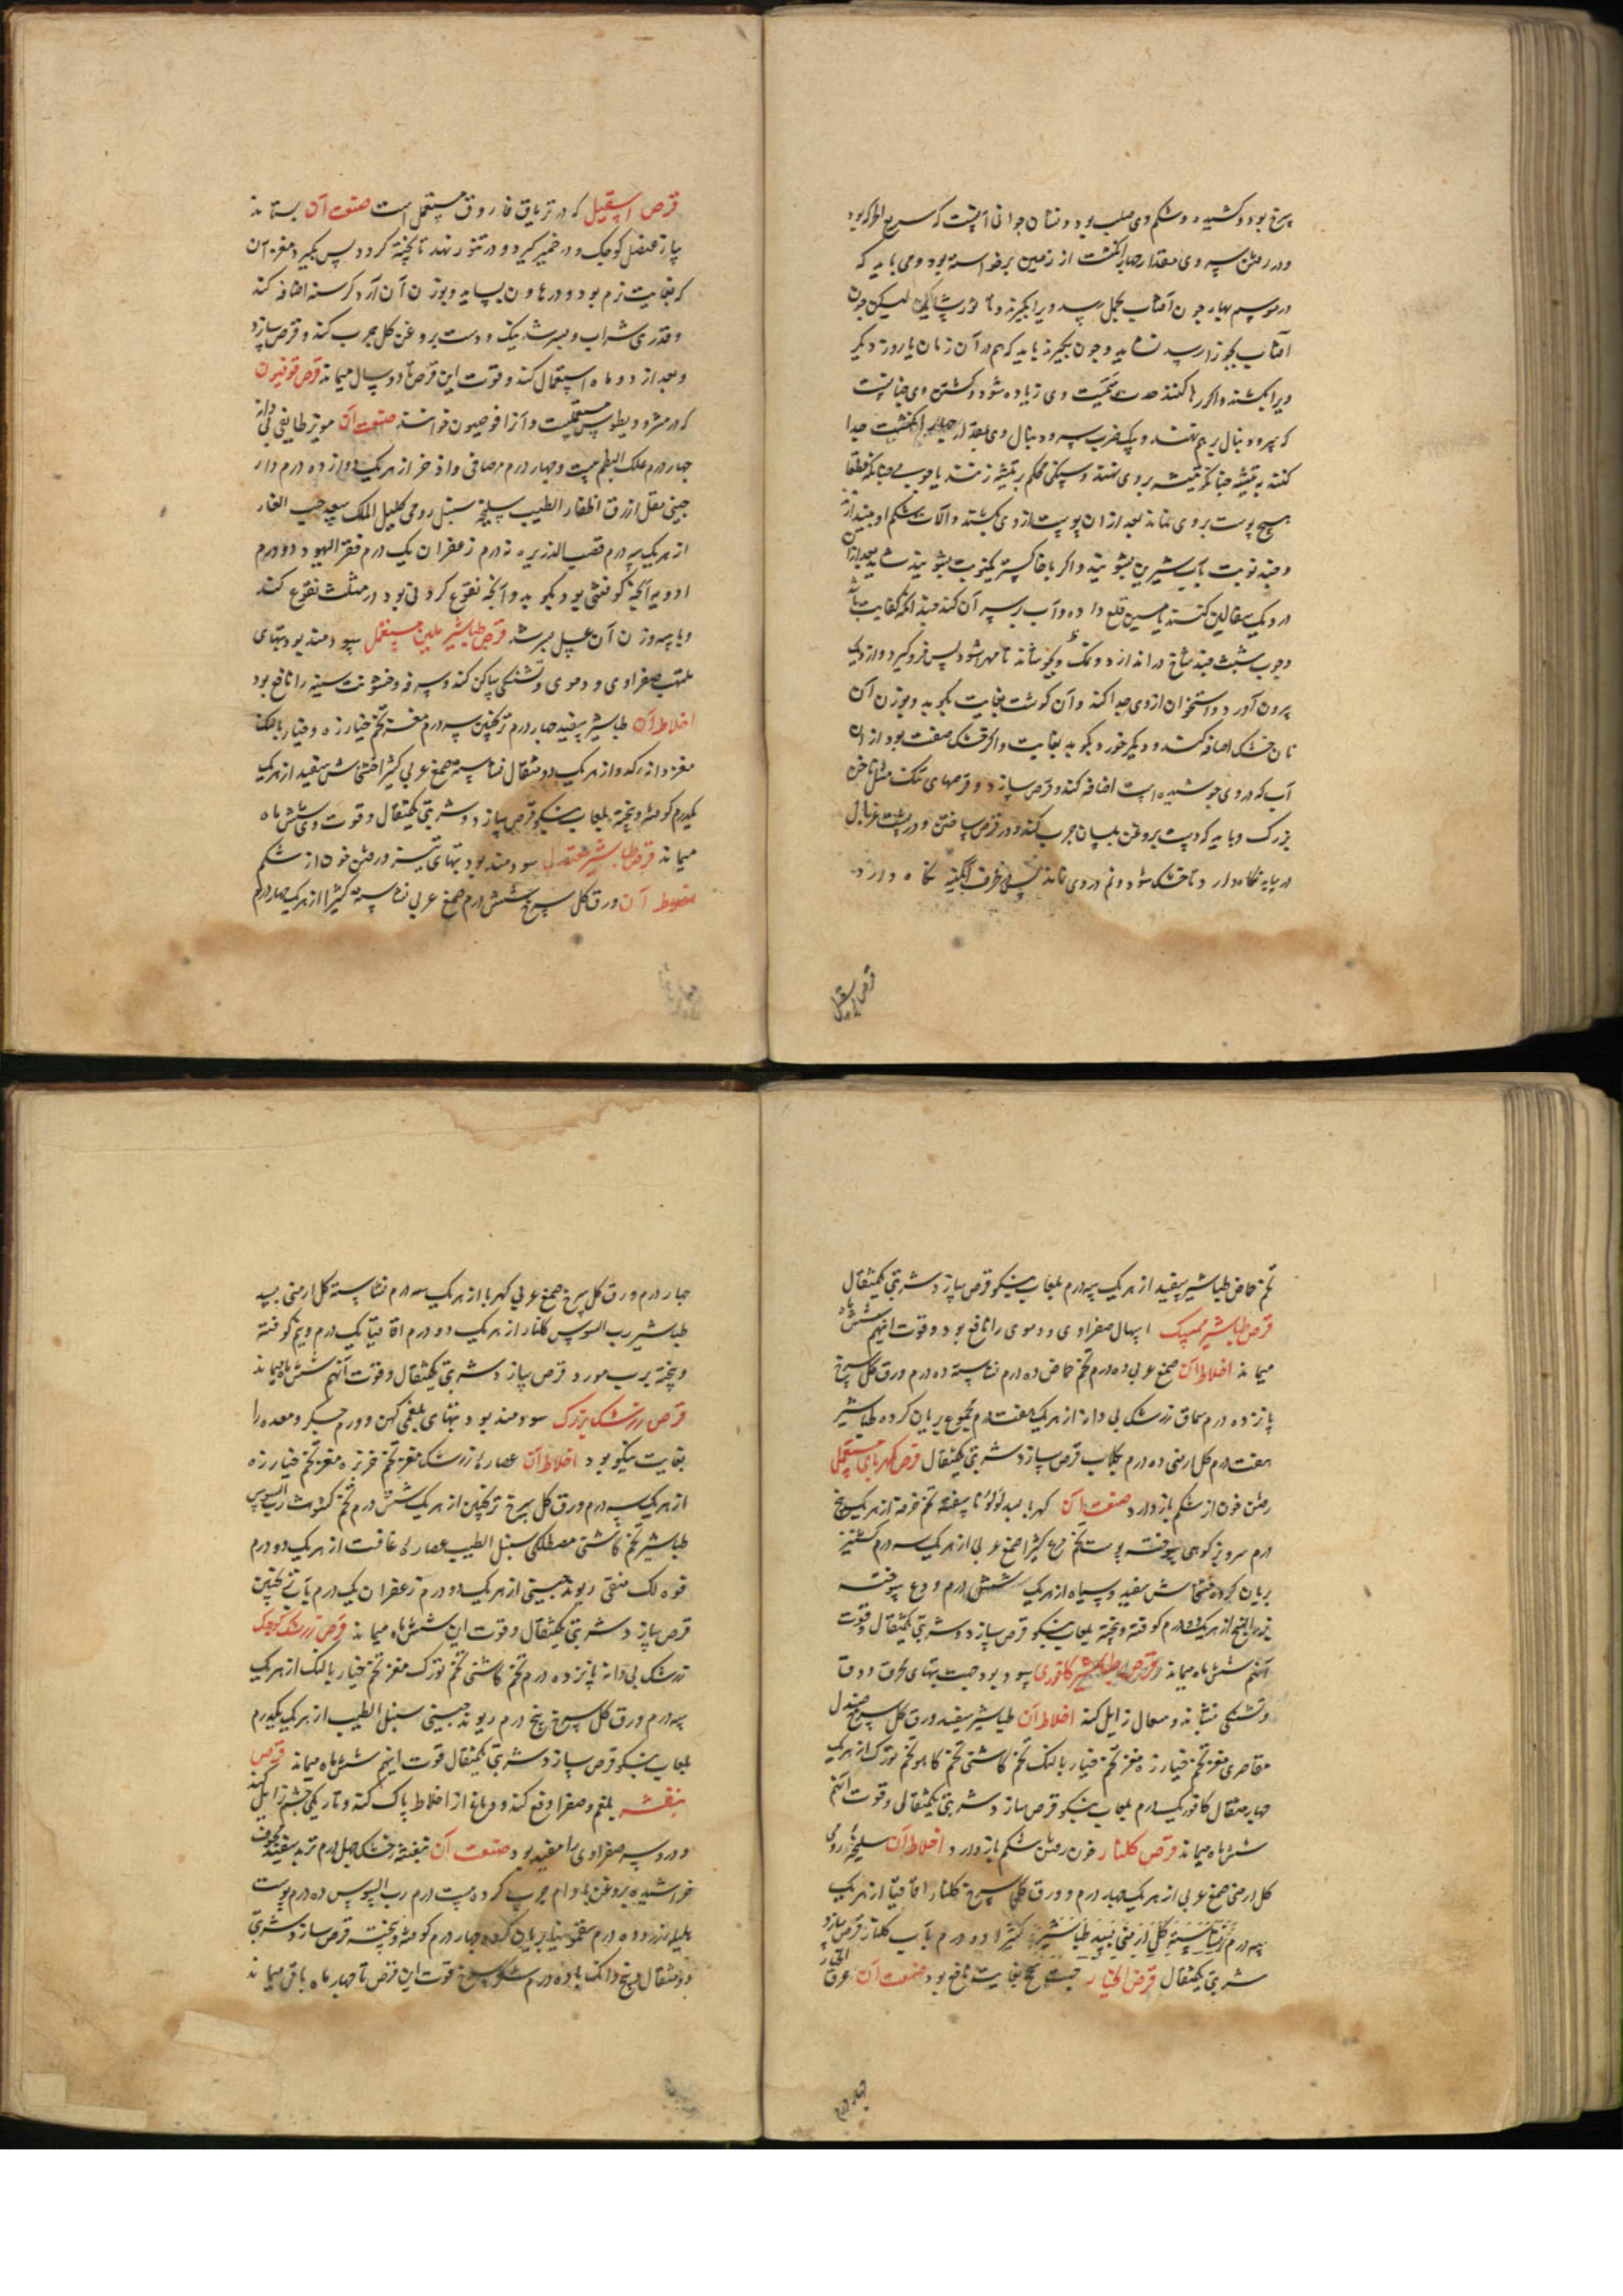 سرخ بود و کشیده و شکم وی صلب بود و نشان جوانی آنست که سریع الحرکه بود
و در رفتن سر وی مقدار چهار انگشت از زمین برخواسته بود و می باید که
در موسم بهار چون آفتاب بحمل رسد ویرا بگیرند و تا لیکن چون
آفتاب بجوزا رسد نشاید و چون بگیرند باید که هم در آن زمان یا روز دیگر
ویرا بکشند و اگر رها کنند حدت سمیت وی زیاده شود و کشتن وی چنانست
که سر و دنبال بر هم نهند و یک ضرب سر و دنبال وی بمقدار چهار انگشت جدا
کنند به تیشه چنانکه تیشه بر وی نهند و سنگی محکم بر تیشه زنند یا چوبی چنانکه قطعا
هیچ پوست بر وی نماند بعد از ان پوست از وی بکشند و آلات شکم او بیندازند
و چند نوبت بآب شیرین بشویند و اگر با خاکستر یکنوبت بشویند شاید بعد ازان
در دیگ سفالین کنند یا مسین قلع داده و آب بر سر آن کنند چندانکه کفایت باشد
و چوب شبت چند شاخ در اندازد و نمک و بجوشاند تا مهرا شود پس فرو گیرد و از دیگ
بیرون آورد و استخوان از وی جدا کند و آن گوشت بغایت بکوبد و بوزن آن
نان خشک اضافه کند و دیگر خورد بکوبد بغایت و اگر خشک صفت بود از ان
آب که در وی جوشیده است اضافه کند و قرص سازد و قرصهای تنک مثل ناخن
بزرگ و باید که دست بروغن بلسان چرب کند در قرص ساختن و در پشت غربال
در سایه نگاه دارد تا خشک شود و نم در وی نماند پس در ظرف آبگینه نگاه دارد
قرص اسقیل
قرص اسقیل که در تریاق فاروق مستعمل است صنعت آن بستانند
پیاز عنصل کوچک و در خمیر گیرد و در تنور نهد تا پخته گردد پس بگیرد مغز آن
که بغایت نرم بود و در هاون بساید و بوزن آن آرد کرسنه اضافه کند
و قدری شراب و بسرشد نیک و دست بروغن گل چرب کند و قرص سازد
و بعد از دو ماه استعمال کند و قوت این قرص تا دو سال میماند قرص قوفیون
که در مثرودیطوس مستعملست و آنرا قوفیون خوانند صنعت آن مویز طایفی بی دانه
چهار درم علک البطم بیست و چهار درم مر صافی و اذخر از هر یک دوازده درم دار
چینی مقل ازرق اظفار الطیب سلیخه سنبل رومی اکلیل الملک سعد حب الغار
از هر یک سه درم قصب الذریره نه درم زعفران یک درم قفر الیهود دو درم
ادویه آنچه کوفتنی بود بکوبد و آنچه نقوع کردنی بود در مثلث نقوع کند
و با سه وزن آن عسل بسرشد قرص طباشیر ملین مستعمل سودمند بود تبهای
ملتهب صفراوی و دموی و تشنگی ساکن کند و سرفه و خشونت سینه را نافع بود
اخلاط آن طباشیر سفید چهار درم ترنجبین سه درم مغز تخم خیارزه و خیار بالنگ
مغز دانه کدو از هر یک دو مثقال نشاسته صمغ عربی کثیرا خشخاش سفید از هر یک
یکدرم کوفته و بیخته بلعاب سبغول قرص سازد و شربتی یکمثقال و قوت وی شش ماه
میماند قرص طباشیر معتدل سودمند بود تبهای تیز و رفتن خون از شکم
اخلاط آن ورق گل سرخ شش درم صمغ عربی نشاسته کثیرا از هر یک چهار درم
تخم حماض طباشیر سفید از هر یک سه درم بلعاب سبغول قرص سازد شربتی یکمثقال
قرص طباشیر ممسک اسهال صفراوی و دموی را نافع بود و قوت اینهم شش ماه
میماند اخلاط آن صمغ عربی ده درم تخم حماض ده درم نشاسته ده درم ورق گل سرخ
پانزده درم سماق زرشک بی دانه از هر یک هفت درم مجموع بریان کرده طباشیر
هفت درم گل ارمنی ده درم بگلاب قرص سازد شربتی یکمثقال قرص کهربای مستعملی
رفتن خون از شکم باز دارد صنعت آن کهربا بسد لؤلؤ ناسفته تخم خرفه از هر یک پنج
درم سروی بز کوهی سوخته پوست تخم مرغ کثیرا صمغ عربی از هر یک سه درم گشنیز
بریان کرده خشخاش سفید و سیاه از هر یک شش درم ودع سوخته
بزرالبنج از هر یک دو درم کوفته و بیخته بلعاب سبغول قرص سازد و شربتی یکمثقال و قوت
آنهم شش ماه میماند قرص طباشیر کافوری سود بود جهت تبهای محرق و دق
و تشنگی بنشاند و سعال زایل کند اخلاط آن طباشیر سفید ورق گل سرخ صندل
مقاصری مغز تخم خیارزه مغز تخم خیار بالنگ تخم کاسنی تخم کاهو تخم تورک از هر یک
چهار مثقال کافور یکدرم بلعاب سبغول قرص سازد شربتی یکمثقال و قوت آنهم
شش ماه میماند قرص گلنار خون رفتن شکم باز دارد اخلاط آن سلیخه رومی
گل ارمنی صمغ عربی از هر یک چهار درم و ورق گل سرخ گلنار اقاقیا از هر یک
سه درم نشاسته گل ارمنی بسد طباشیر کثیرا دو درم بآب گلنار قرص سازد
شربتی یکمثقال قرص الخیار جهت بغایت نافع بود صنعت آن عرق
چهار درم
چهار درم ورق گل سرخ صمغ عربی کهربا از هر یک سه درم نشاسته گل ارمنی بسد
طباشیر رب السوس گلنار از هر یک دو درم اقاقیا یک درم و نیم کوفته
و بیخته برب مورد قرص سازد شربتی یکمثقال و قوت آنهم شش ماه میماند
قرص زرشک بزرگ سودمند بود تبهای بلغمی کهن و ورم جگر و معده را
بغایت نیکو بود اخلاط آن عصاره زرشک مغز تخم خربزه مغز تخم خیارزه
از هر یک سه درم ورق گل سرخ ترنجبین از هر یک شش درم تخم کشوث رب السوس
طباشیر تخم کاسنی مصطکی سنبل الطیب عصاره غافت از هر یک دو درم
فوه لک منقی ریوند چینی از هر یک دو درم زعفران یک درم بآب ترنجبین
قرص سازد شربتی یکمثقال و قوت این شش ماه میماند قرص زرشک کوچک
زرشک بی دانه پانزده درم تخم کاسنی تخم تورک مغز تخم خیار بالنگ از هر یک
سه درم ورق گل سرخ پنج درم ریوند چینی سنبل الطیب از هر یک یکدرم
بلعاب سبغول قرص سازد شربتی یکمثقال قوت اینهم شش ماه میماند قرص
بنفشه بلغم و صفرا دفع کند و دماغ از اخلاط پاک کند و تاریکی چشم زایل کند
و درد سر صفراوی را مفید بود صنعت آن بنفشه خشک چهل درم تربد سفید مجوف
خراشیده بروغن بادام چرب کرده بیست درم رب السوس ده درم پوست
هلیله زرد ده درم سقمونیا بریان کرده چهار درم کوفته و بیخته قرص سازد شربتی
دو مثقال و پنج دانگ با ده درم شکر سرخ قوت این قرص تا چهار ماه باقی میماند